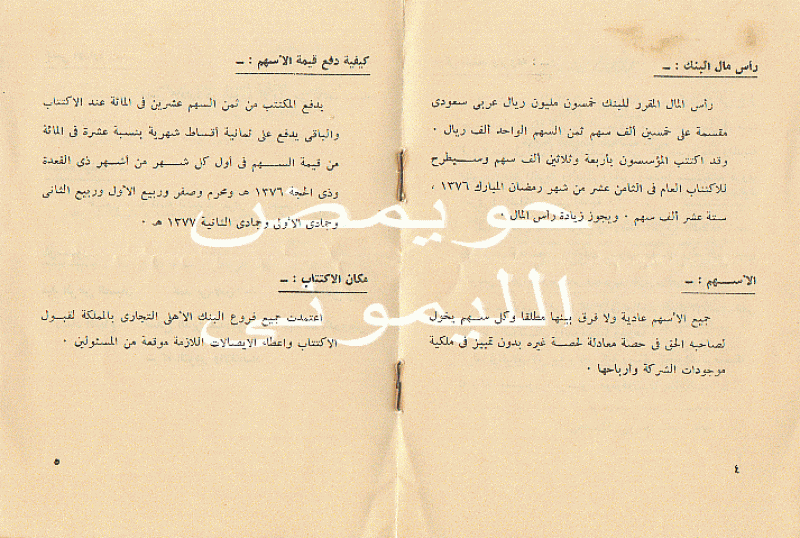 رأس مال البنك : —
رأس المال المقرر للبنك خمسون مليون ريال عربي سعودى
مقسمة على خمسين ألف سهم ثمن السهم الواحد ألف ريال ·
وقد اكتتب المؤسسون بأربعة وثلاثين ألف سهم وسيطرح
للاكتتاب العام فى الثامن عشر من شهر رمضان المبارك ١٣٧٦ ،
ستة عشر ألف سهم · ويجوز زيادة رأس المال ·
الأسهم : —
جميع الأسهم عادية ولا فرق بينها مطلقا وكل سهم يخول
لصاحبه الحق فى حصة معادلة لحصة غيره بدون تمييز فى ملكية
موجودات الشركة وارباحها ·
٤
كيفية دفع قيمة الأسهم : —
يدفع المكتتب من ثمن السهم عشرين فى المائة عند الاكتتاب
والباقى يدفع على ثمانية أقساط شهرية بنسبة عشرة فى المائة
من قيمة السهم فى أول كل شهر من أشهر ذى القعدة
وذى الحجة ١٣٧٦ هـ ومحرم وصفر وربيع الأول وربيع الثانى
وجمادى الأولى وجمادى الثانية ١٣٧٧ هـ ·
مكان الاكتتاب : —
اعتمدت جميع فروع البنك الأهلى التجارى بالمملكة لقبول
الاكتتاب واعطاء الايصالات اللازمة موقعة من المسئولين ·
٥
الليموني